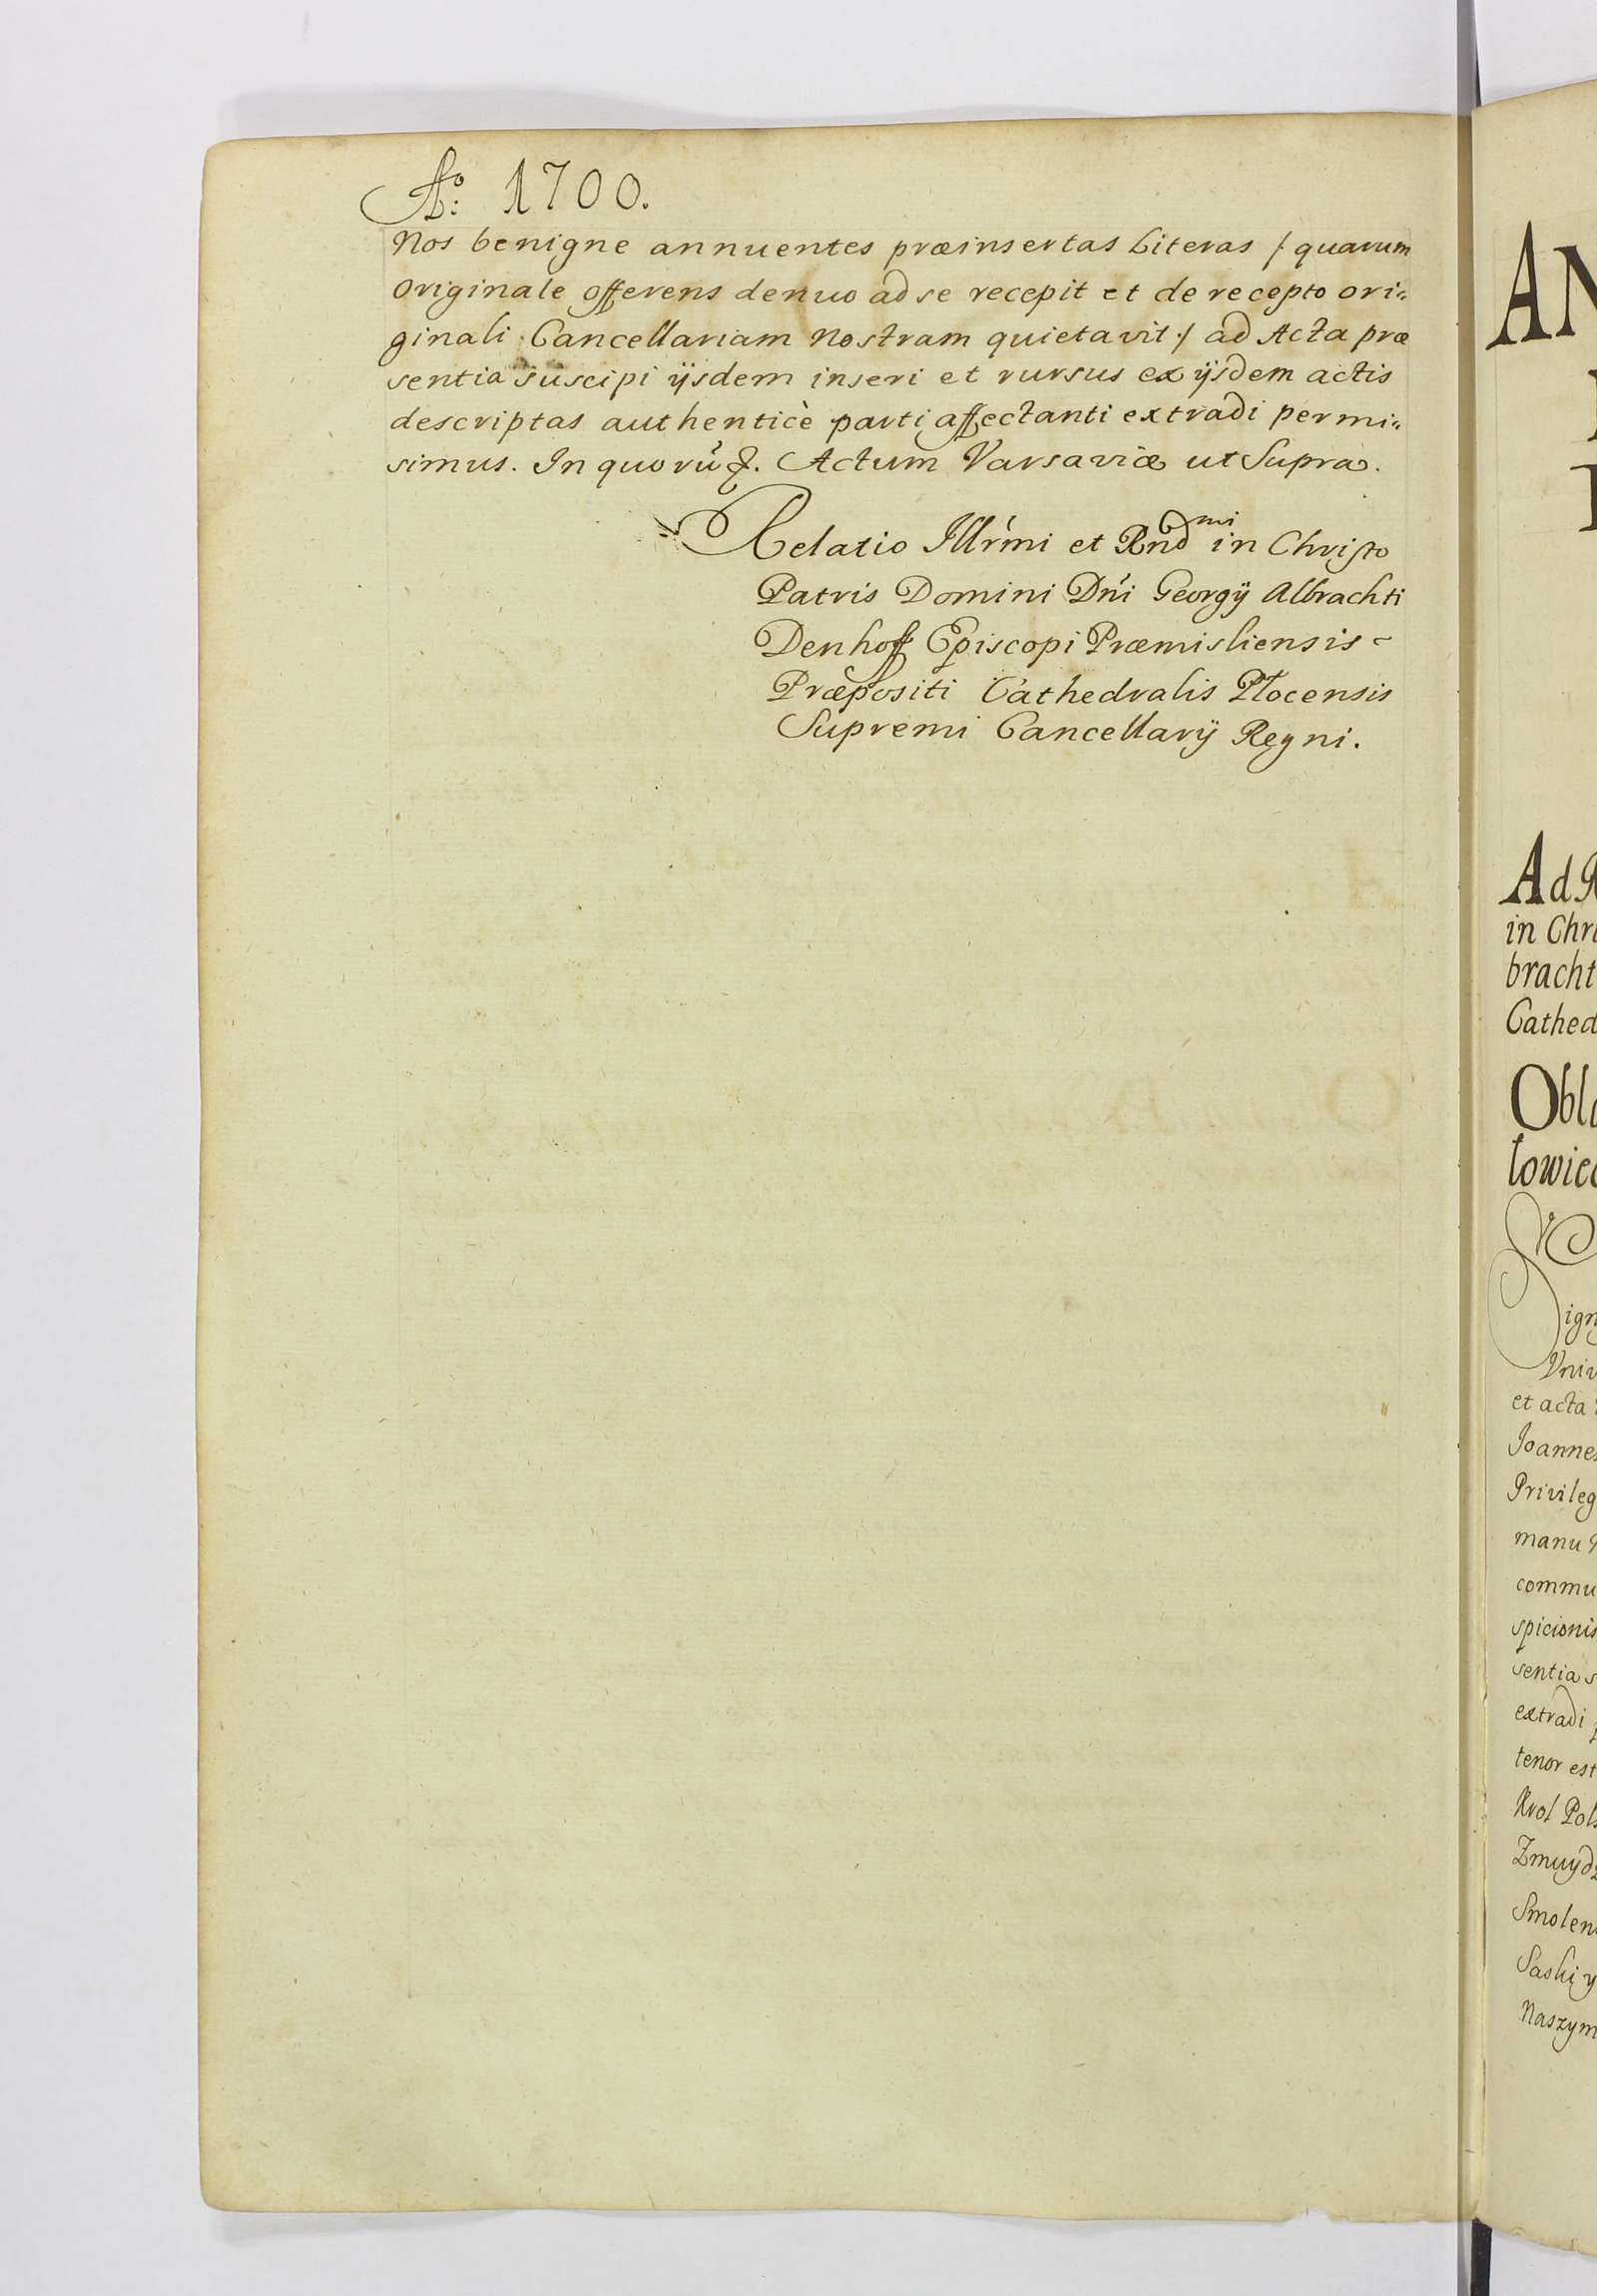 Aº: 1700.
Nos benigne annuentes præinsertas Literas /: quarum
Originale offerens denuo ad se recepit et de recepto ori=
ginali Cancellariam Nostram quietavit :/ ad Acta præ
sentia suscipi ijsdem inseri et rursus ex ijsdem actis
descriptas authenticè parti affectanti extradi permi=
simus. In quorũ &. Actum Varsaviæ ut Supra.
Relatio Illr̃mi et Rnd mi in Christo
Patris Domini Dńi Georgij Albrachti
Denhoff Episcopi Præmisliensis
Præpositi Cathedralis Płocensis
Supremi Cancellarij Regni.
AN
Ad R
in Chri
bracht
Cathed
Obla
łowiec
Sign
Univ
et acta
Joannes
Privileg
manu
commu
spicionis
sentia s
extradi
tenor est
Krol Pols
Zmuydz
Smolens
Saski y
Naszym